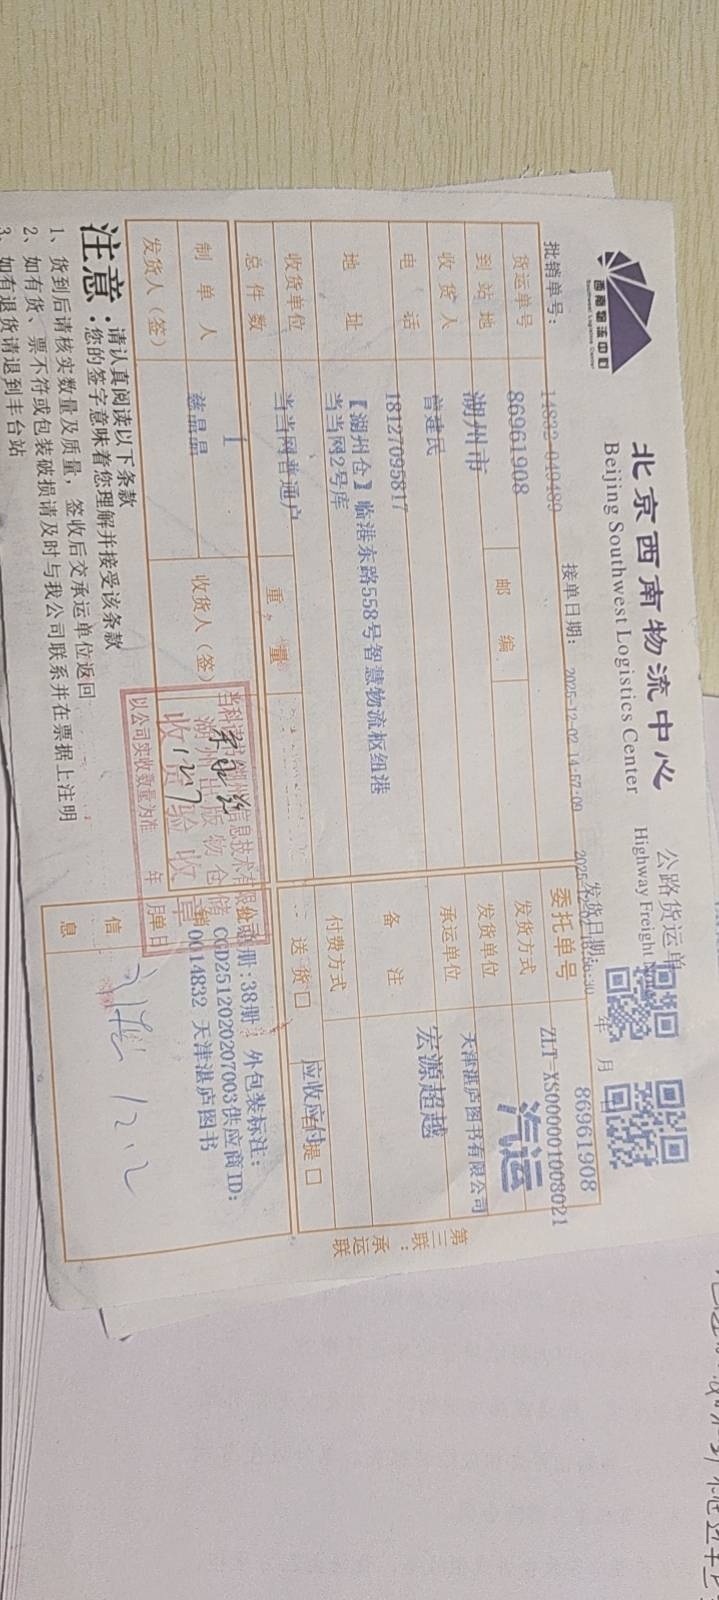 西南物流中心
Southwest Logistics Center
北京西南物流中心
Beijing Southwest Logistics Center
公路货运单
Highway Freight
批销单号：
14832-040489
接单日期：
2025-12-02 14:57:09
发货日期：
年 月
86961908
货运单号
86961908
委托单号
ZLT-XS000001008021
到站地
湖州市
邮编
发货方式
汽运
收货人
曾建民
发货单位
天津湛庐图书有限公司
电话
18127095817
承运单位
宏源超越
地址
【湖州仓】临港东路558号智慧物流枢纽港
当当网2号库
备注
收货单位
当当网普通户
付费方式
应收应付
总件数
1
重量
送货口
提口
制单人
慈晶晶
收货人（签）
发货人（签）
信息
册:38册: 外包装标注:
CGD2512020207003供应商ID:
0014832 天津湛庐图书
湖州出版物仓储
收货验收章
以公司实收数量为准
年 月 日
12.7
12.2
第三联：承运联
注意：
请认真阅读以下条款
您的签字意味着您理解并接受该条款
1、货到后请核实数量及质量，签收后交承运单位返回
2、如有货、票不符或包装破损请及时与我公司联系并在票据上注明
3、如有退货请退到丰台站